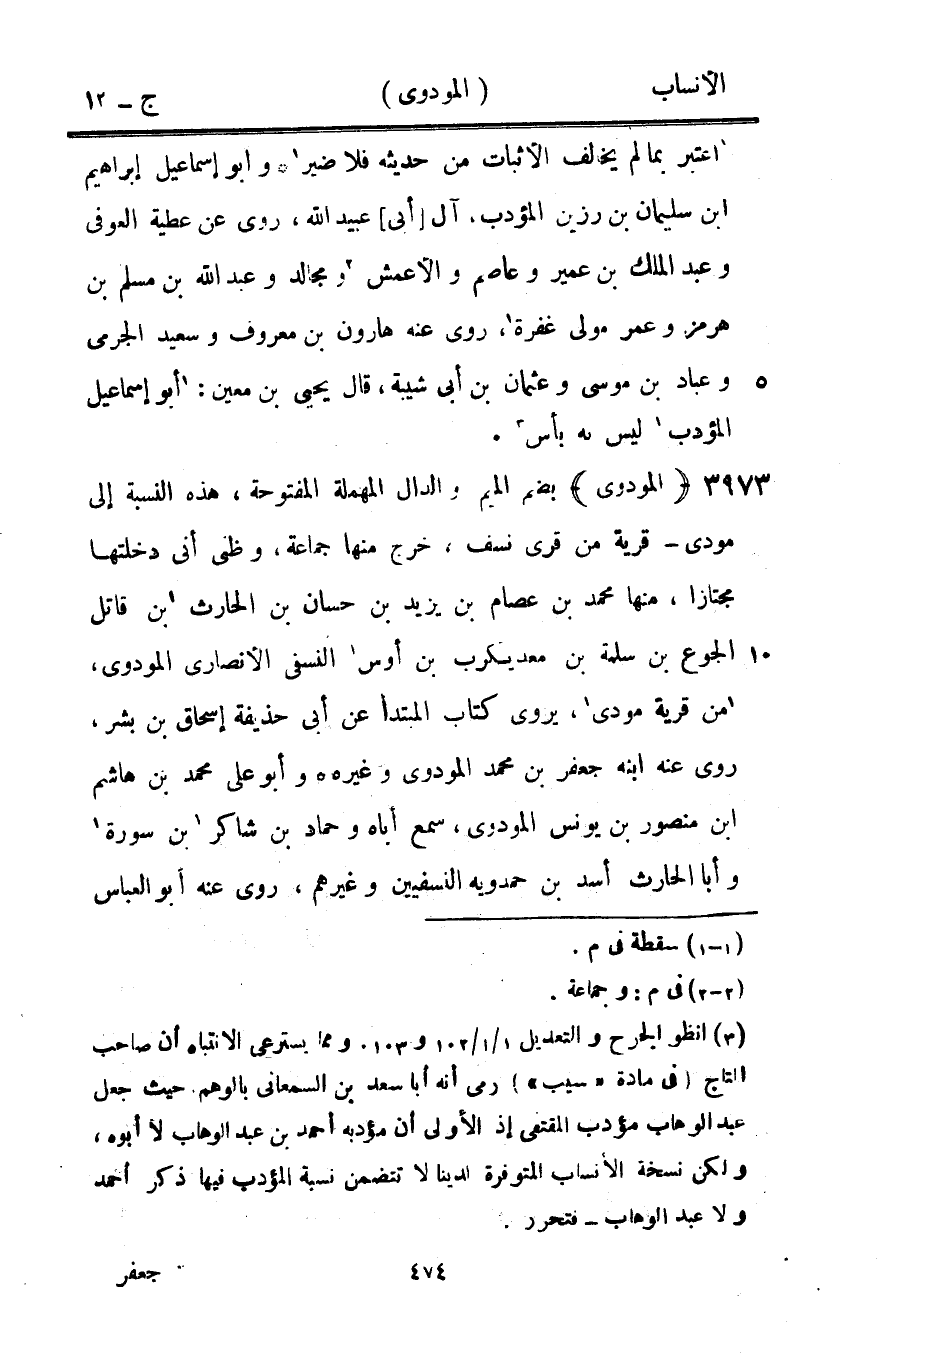 الأنساب ( المودوى ) ج - ١٢
١اعتبر بمالم يخالف الأثبات من حديثه فلا ضير١ * و ابو إسماعيل إبراهيم
ابن سليمان بن رزين المؤدب، آل [أبى] عبيد الله ، روى عن عطية العوفى
و عبد الملك بن عمير و عاصم و الأعمش ٢و مجالد و عبد الله بن مسلم بن
هرمز و عمر مولى غفرة٢، روى عنه هارون بن معروف و سعيد الجرمى
٥ و عباد بن موسى و عثمان بن أبى شيبة ، قال يحيى بن معين : ١أبو إسماعيل
المؤدب١ ليس به بأس٣ .
٣٩٧٣ ﴿ المودوى ﴾ بضم الميم و الدال المهملة المفتوحة ، هذه النسبة إلى
مودى - قرية من قرى نسف ، خرج منها جماعة ، و ظنى أنى دخلتها
مجتازا ، منها محمد بن عصام بن يزيد بن حسان بن الحارث ١بن قاتل
١٠ الجوع بن سلمة بن معديكرب بن أوس١ النسفى الأنصارى المودوى ،
١من قرية مودى١ ، يروى كتاب المبتدأ عن أبى حذيفة إسحاق بن بشر ،
روى عنه ابنه جعفر بن محمد المودوى و غيره ٥ و أبو على محمد بن هاشم
ابن منصور بن يونس المودوى ، سمع أباه و حماد بن شاكر ١بن سورة١
و أبا الحارث أسد بن حمدويه النسفيين و غيرهم ، روى عنه أبو العباس
(١-١) سقطة فى م .
(٢-٢) فى م : و جماعة .
(٣) انظر الجرح و التعديل ١٠٢/١/١ و ١٠٣ . و مما يسترعى الانتباه أن صاحب
التاج ( فى مادة « سيب » ) رمى أنه أبا سعد بن السمعانى بالوهم حيث جعل
عبد الوهاب مؤدب المقتفى إذ الأولى أن مؤدبه أحمد بن عبد الوهاب لا أبوه ،
و لكن نسخة الأنساب المتوفرة لدينا لا تتضمن نسبة المؤدب فيها ذكر أحمد
و لا عبد الوهاب - فتحرر .
٤٧٤ جعفر